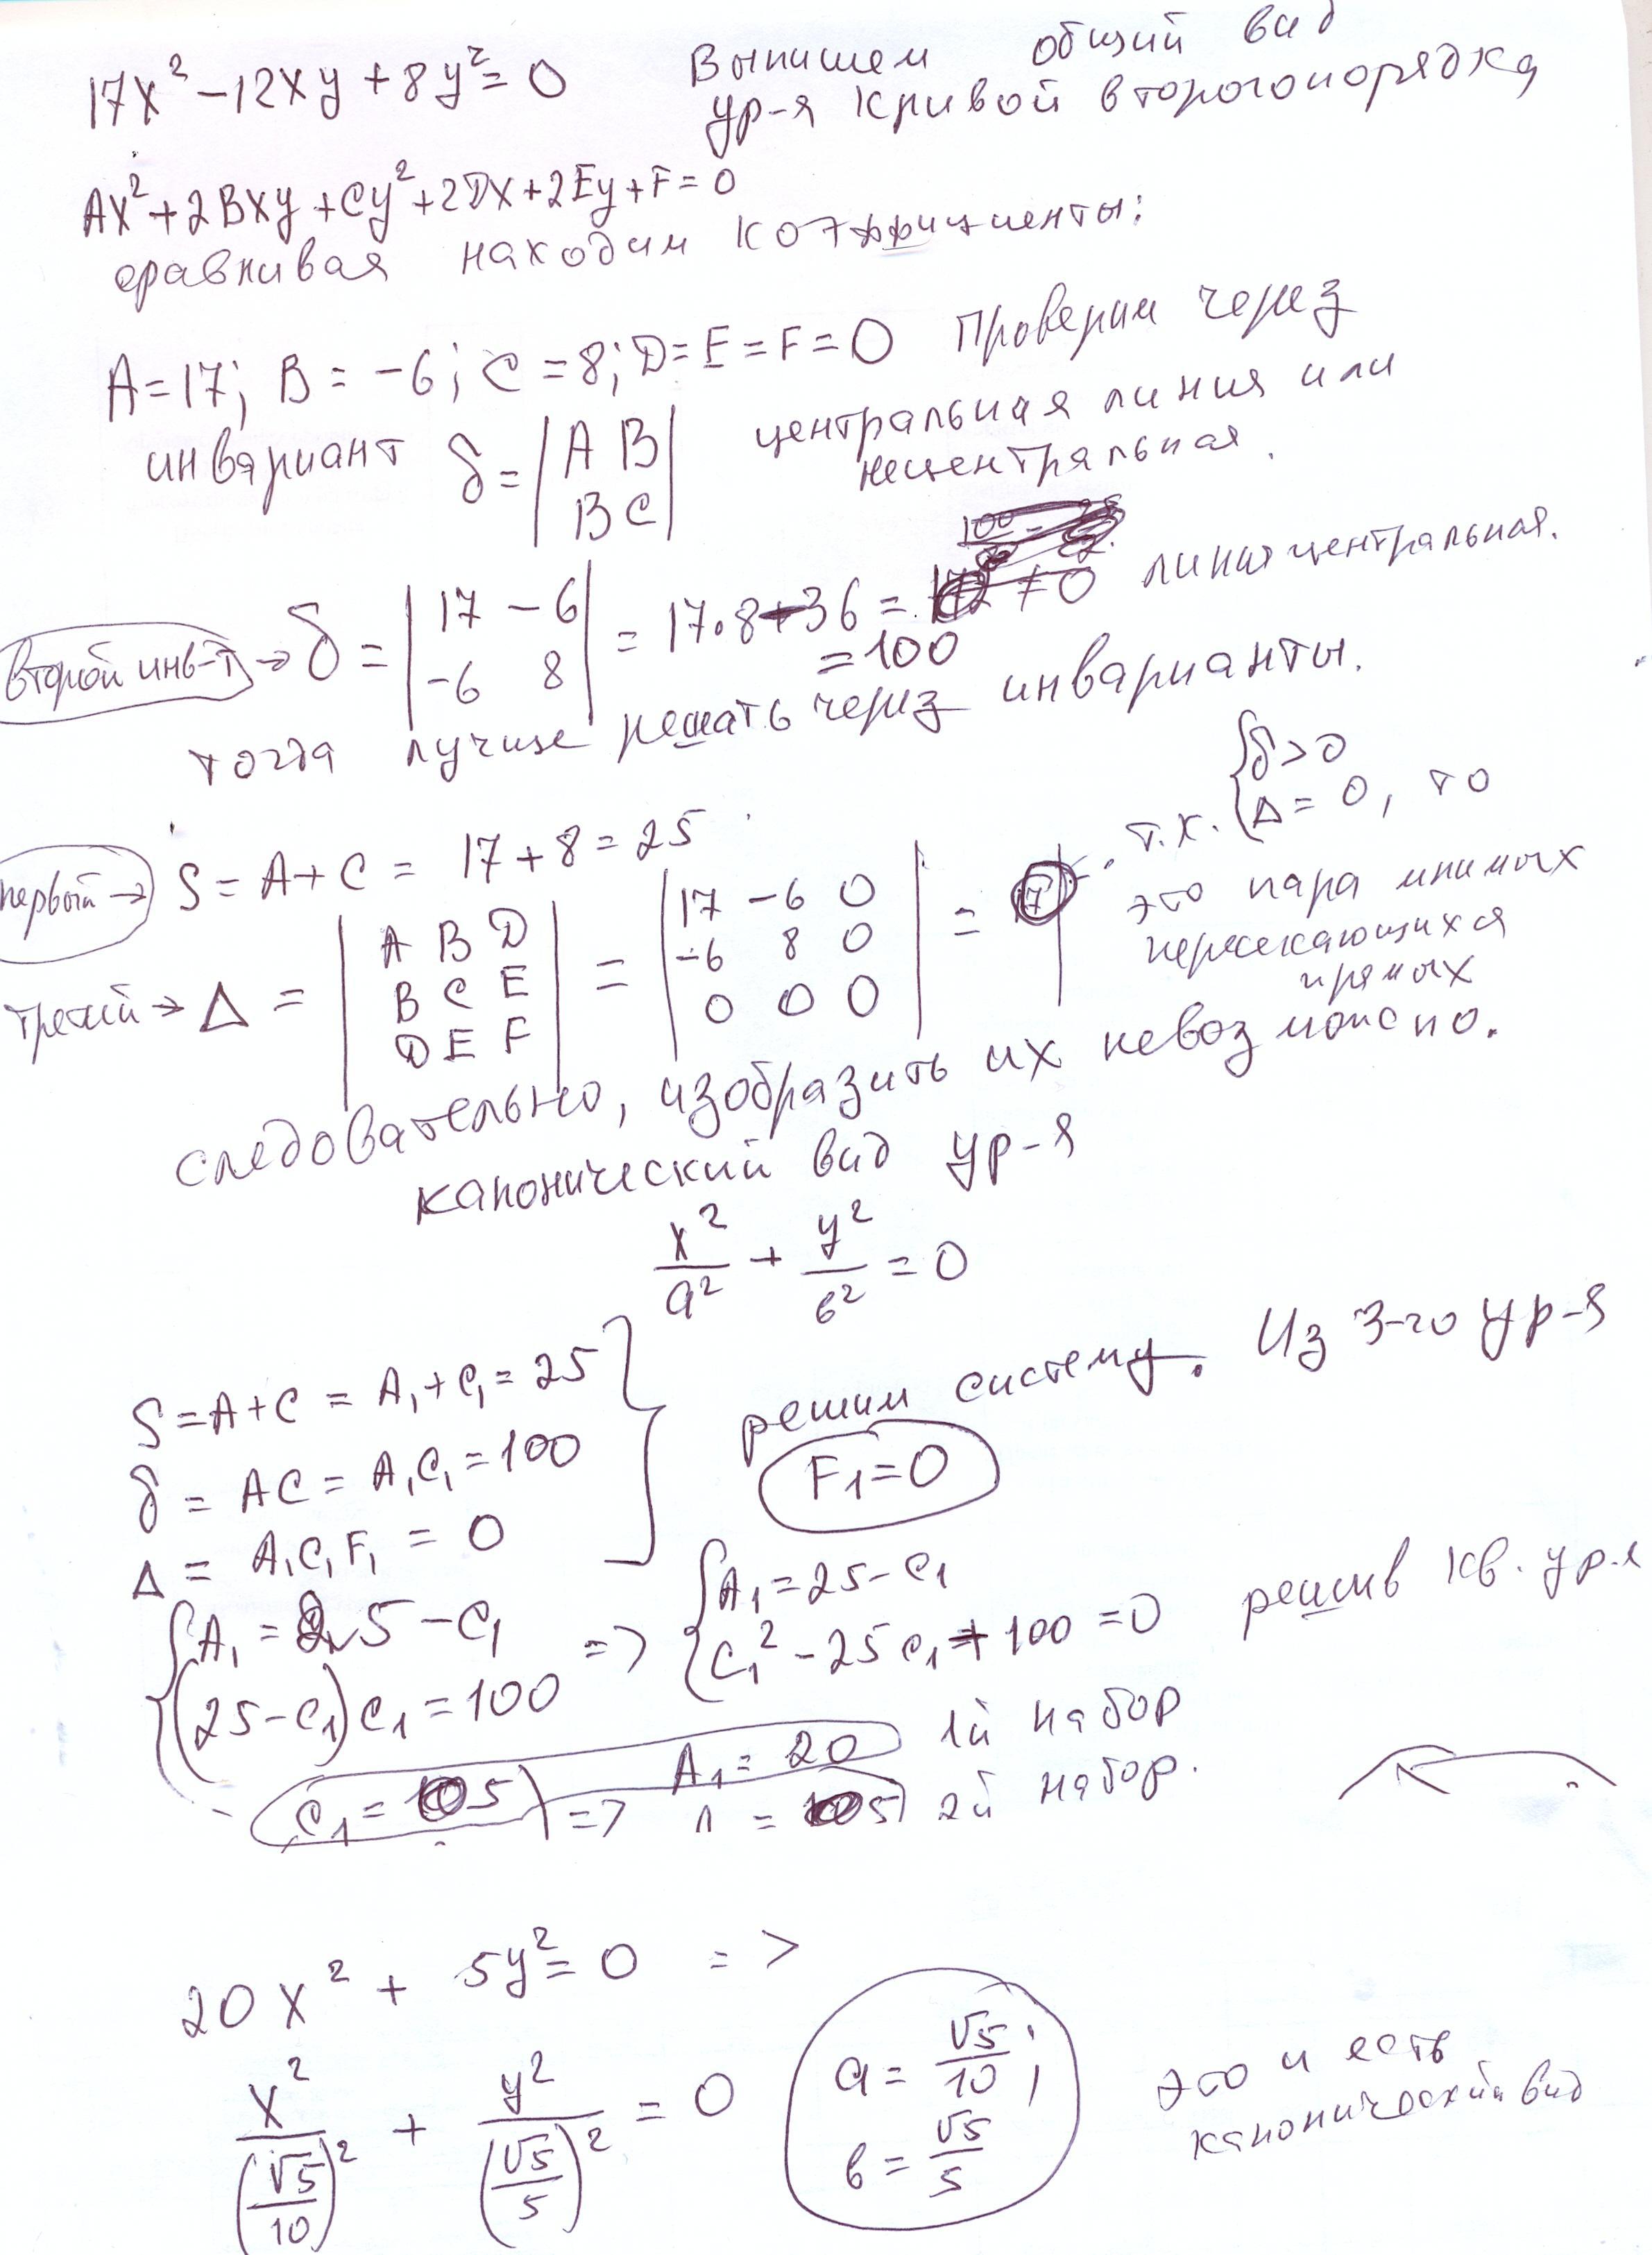 17x² − 12xy + 8y² = 0 Выпишем общий вид
ур-я кривой второго порядка
Ax² + 2Bxy + Cy² + 2Dx + 2Ey + F = 0
сравнивая находим коэффициенты:
A = 17; B = −6; C = 8; D = E = F = 0 Проверим через
инвариант δ = |A B; B C| центральная линия или
нецентральная.
второй инв-т → δ = |17 −6; −6 8| = 17·8 − 36 = ≠ 0 линия центральная.
= 100
тогда лучше решать через инварианты.
первый → S = A + C = 17 + 8 = 25
третий → Δ = |A B D; B C E; D E F| = |17 −6 0; −6 8 0; 0 0 0| =
т.к. {δ > 0
Δ = 0, то
это пара мнимых
пересекающихся
прямых
следовательно, изобразить их невозможно.
канонический вид ур-я
x²/a² + y²/b² = 0
S = A + C = A₁ + C₁ = 25
δ = AC = A₁C₁ = 100
Δ = A₁C₁F₁ = 0
решим систему. Из 3-го ур-я
F₁ = 0
{A₁ = 25 − C₁
(25 − C₁)C₁ = 100
=> {A₁ = 25 − C₁
C₁² − 25C₁ + 100 = 0 решив кв. ур-я
C₁ = 5 => A₁ = 20 1й набор
= 5 2й набор.
20x² + 5y² = 0 =>
x²/(√5/10)² + y²/(√5/5)² = 0
a = √5/10;
b = √5/5
это и есть
канонический вид